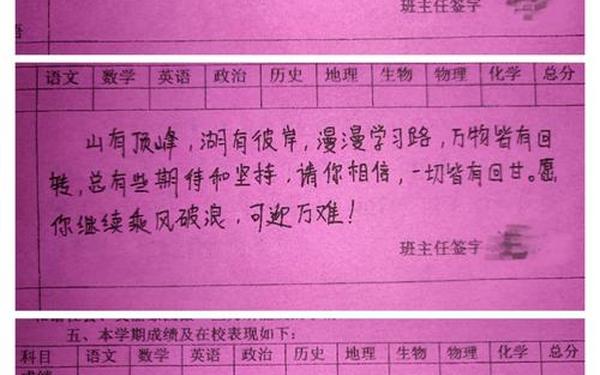 班主任签字
语文 数学 英语 政治 历史 地理 生物 物理 化学 总分
山有顶峰，湖有彼岸，漫漫学习路，万物皆有回
转，总有些期待和坚持，请你相信，一切皆有回甘。愿
你继续乘风破浪，可迎万难！
班主任签字
五、本学期成绩及在校表现如下：
科目 语文 数学 英语 政治 历史 地理 生物 物理 化学 总分